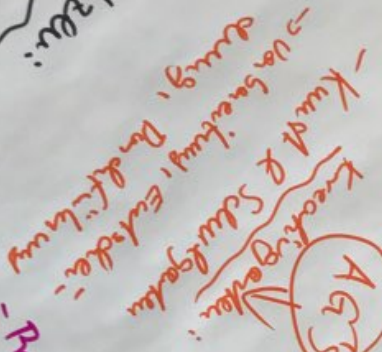 AG's
Kreativgarten:
- Kunst & Schulgarten
-> Vorbereitung, Entschei-
dung, Durchführung